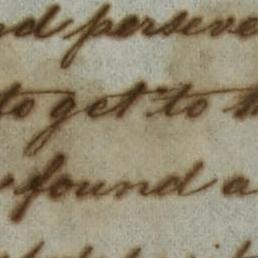 nd perseve
to get to th
found a